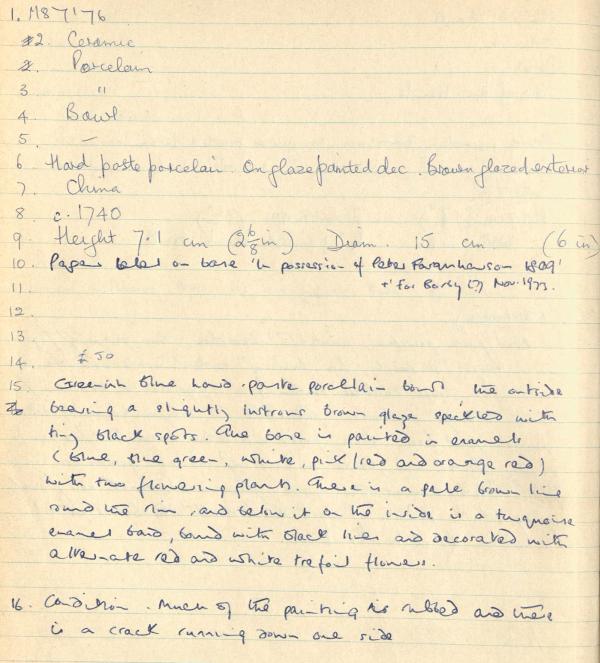 1. M8'7'76
2. Ceramic
2. Porcelain
3 "
4 Bowl
5. —
6 Hard paste porcelain. Onglaze painted dec. Brown glazed exterior
7. China
8 c. 1740
9. Height 7.1 cm (2 6/8 in) Diam. 15 cm (6 in)
10. Paper label on base 'In possession of Peter 1809'
+ 'for (?) Nov. 1973.
11.
12.
13
14. £50
15 Greenish blue hard-paste porcelain bowl the outside
bearing a slightly lustrous brown glaze speckled with
tiny black spots. The base is painted in enamels
(blue, blue green, white, pink/red and orange red)
with two flowering plants. There is a pale brown line
round the rim, and below it on the inside is a turquoise
enamel band, bound with black lines and decorated with
alternate red and white trefoil flowers.
16. Condition. Much of the painting is rubbed and there
is a crack running down one side